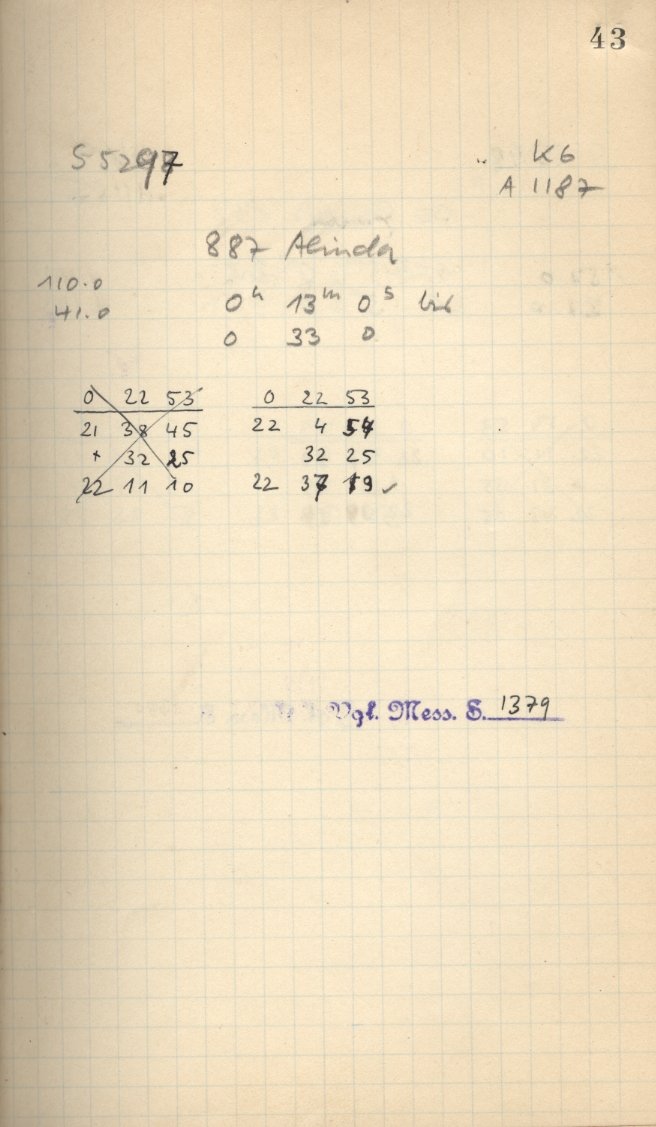 43
S 5297
K 6
A 1187
887 Alinda
110.0
41.0
0h 13m 0s bis
0 33 0
0 22 53
21 38 45
+ 32 25
22 11 10
0 22 53
22 4 54
32 25
22 37 19 ✓
Vgl. Mess. S. 1379